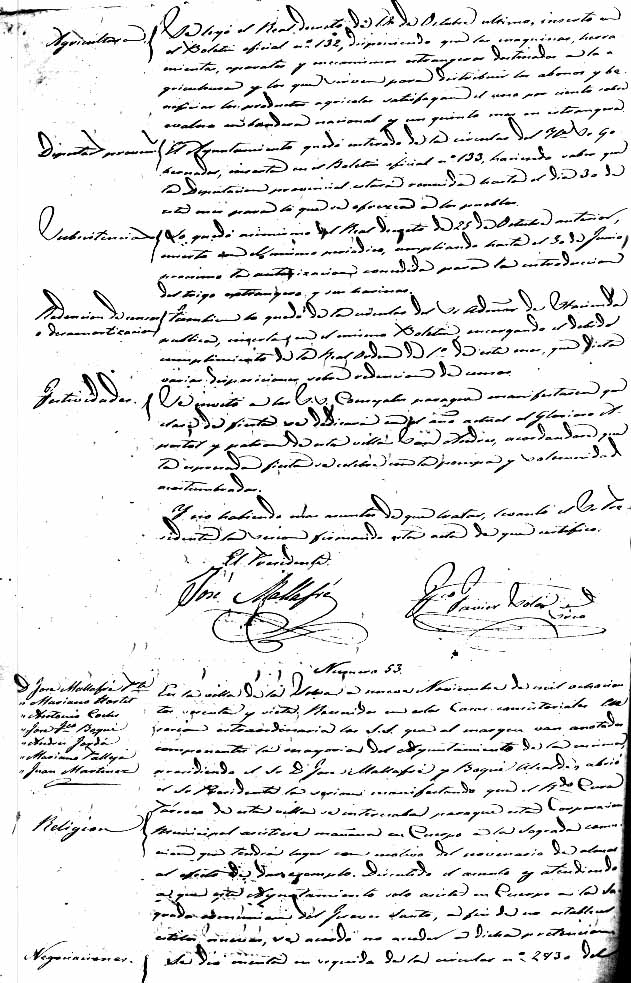 Agricultura
Se leyó el Real decreto de 18 de Octubre último, inserto en
el Boletin oficial nº 132, disponiendo que las maquinas, herra
mientas, aparatos y mecanismos estrangeros destinados a la a
gricultura y los que sirven para distribuir los abonos y be
neficiar los productos agricolas satisfagan el uno por ciento sobre
avaluo en bandera nacional y un quinto mas en estrangera.
Diputac. provincial
El Ayuntamiento quedó enterado de la circular del Sr. Go
bernador, inserta en el Boletin oficial nº 133, haciendo saber que
la Diputacion provincial estará reunida hasta el dia 30 de
este mes para lo que se ofrezca a los pueblos.
Subsistencias
Lo quedó asimismo del Real decreto de 25 de Octubre anterior,
inserto en el mismo periodico, ampliando hasta el 30 de Junio
procsimo la autorizacion concedida para la introduccion
del trigo estrangero y sus harinas.
Redencion de censos
o desamortizacion
Tambien lo quedó de la circular del Sr. Admor. de Hacienda
publica, inserta en el mismo Boletin, encargando el debido
cumplimiento de la Real orden de 1º de este mes, que dicta
varias disposiciones sobre redencion de censos.
Festividades.
Se invitó a los Sres. Concejales para que manifestasen que
clase de fiesta se dedicara en el año actual al Glorioso A
postol y patron de esta villa San Andres, acordandose que
la espresada fiesta se celebre con la pompa y solemnidad
acostumbradas.
Y no habiendo mas asuntos de que tratar, levantó el Sr. Pre
sidente la sesion firmando esta acta de que certifico.
El Presidente
José Mallafré
Fco. Javier Soler
Srio
Numero 53.
D. Jose Mallafré Pte.
" Mariano Hortet
" Antonio Cortes
" Jose Fco. Boqué
" Andres Jordá
" Mariano Vallespá
" Juan Martinez
En la villa de la Selva a nueve Noviembre de mil ochocien
tos sesenta y siete. Reunidos en estas Casas consistoriales en
sesion estraordinaria los Sres. que al margen van anotados
componentes la mayoria del Ayuntamiento de la misma,
presidiendo el Sr. D. Jose Mallafré y Boqué Alcalde, abrió
el Sr. Presidente la sesion manifestando que el Rdo. Cura
Religion
Parroco de esta villa se interesaba para que esta Corporacion
Municipal asistiera mañana en Cuerpo a la Sagrada comu
nion que tendrá lugar con motivo del novenario de almas
al efecto de dar egemplo. Discutido el asunto y atendiendo
a que este Ayuntamiento solo asiste en Cuerpo en la Sa
grada comunion del Jueves Santo, a fin de no establecer
estilos nuevos, se acordó no acceder a dicha pretencion.
Negociaciones.
Se dió cuenta en seguida de la circular nº 2430 del